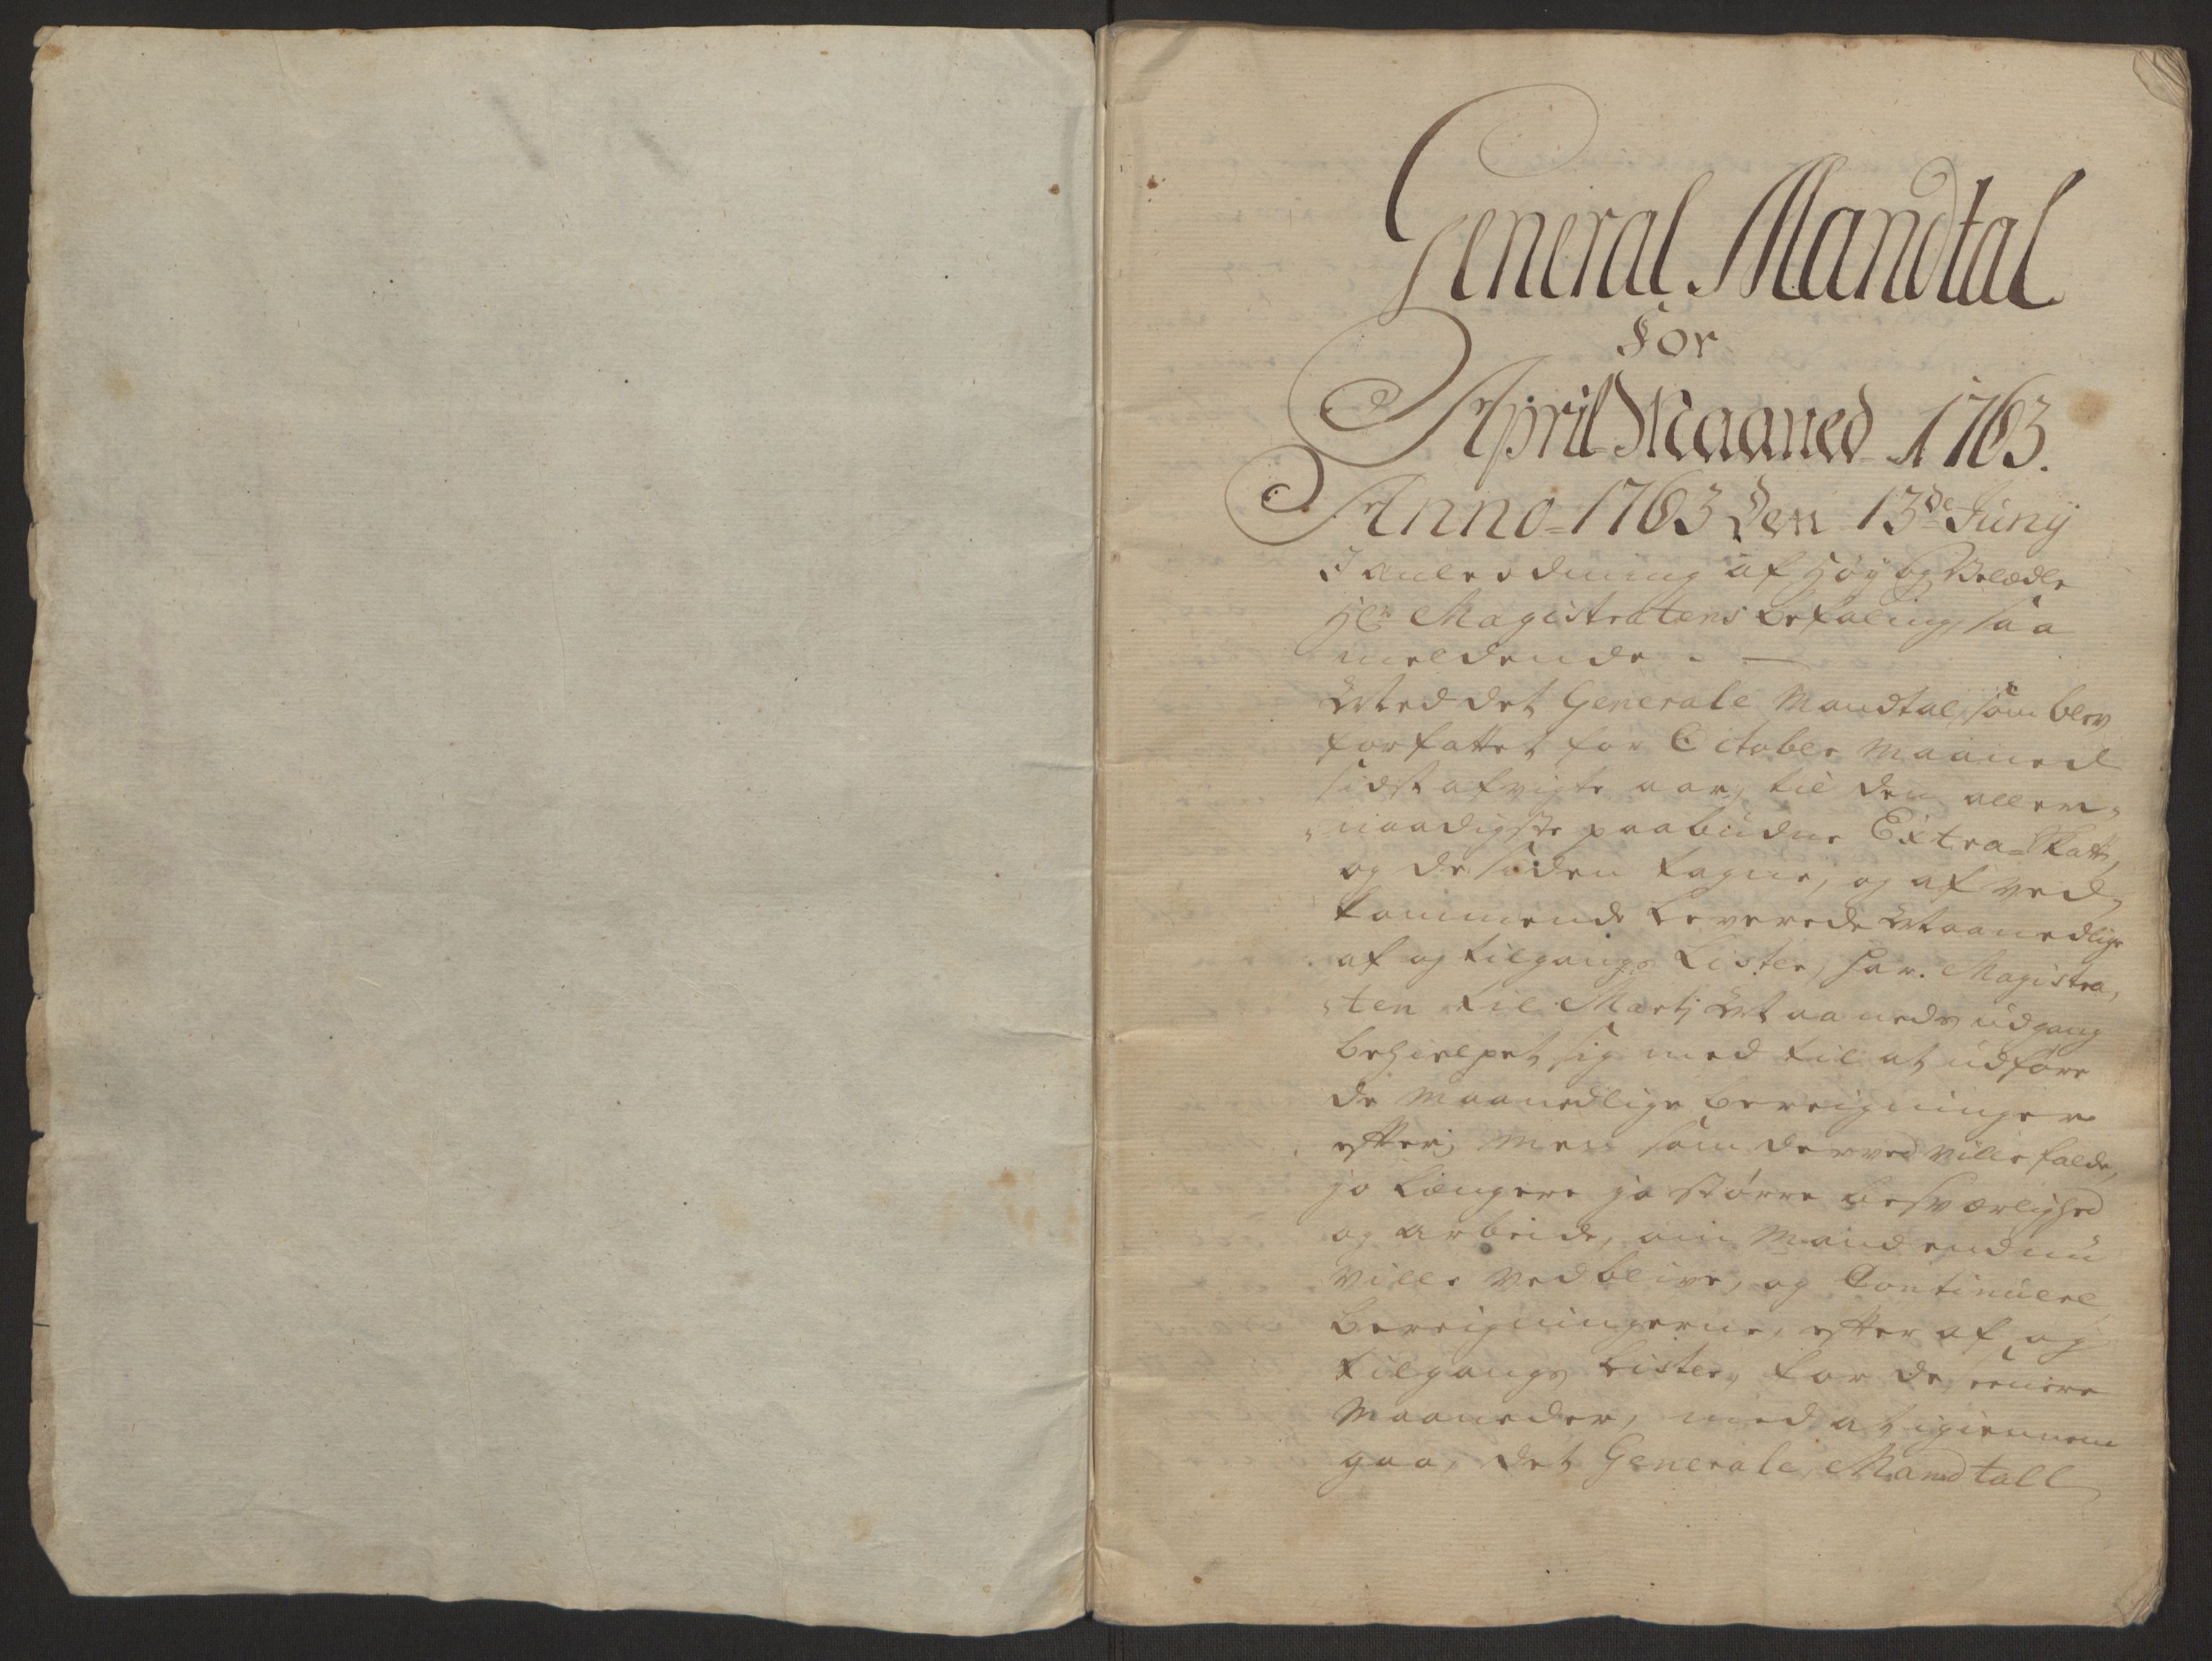 General Mandtal
For
April Maaned 1763.
Anno 1763 den 13de Juny
I anledning af Høy og Velædle
Hr Magistratens befaling saa
meldende. —
Med det Generale Mandtal, som blev
forfattet for October Maaned
sidst afvigte aar, til den aller-
naadigste paabudne Extra-Skatt,
og de siden tagne, og af ved-
kommende leverede Maanedlige
af og tilgangs Lister, har Magistra-
ten til Martj Maaneds udgang
behielpet sig med til at udføre
de Maanedlige bereigninger
efter; men som derved ville falde,
jo længere jo større besværlighed
og arbeide, om Mand endnu
ville vedblive, og Continuere
bereigningerne, efter af og
tilgangs Lister, for de
Maaneder, med at igiennem
gaa, det Generale Mandtall